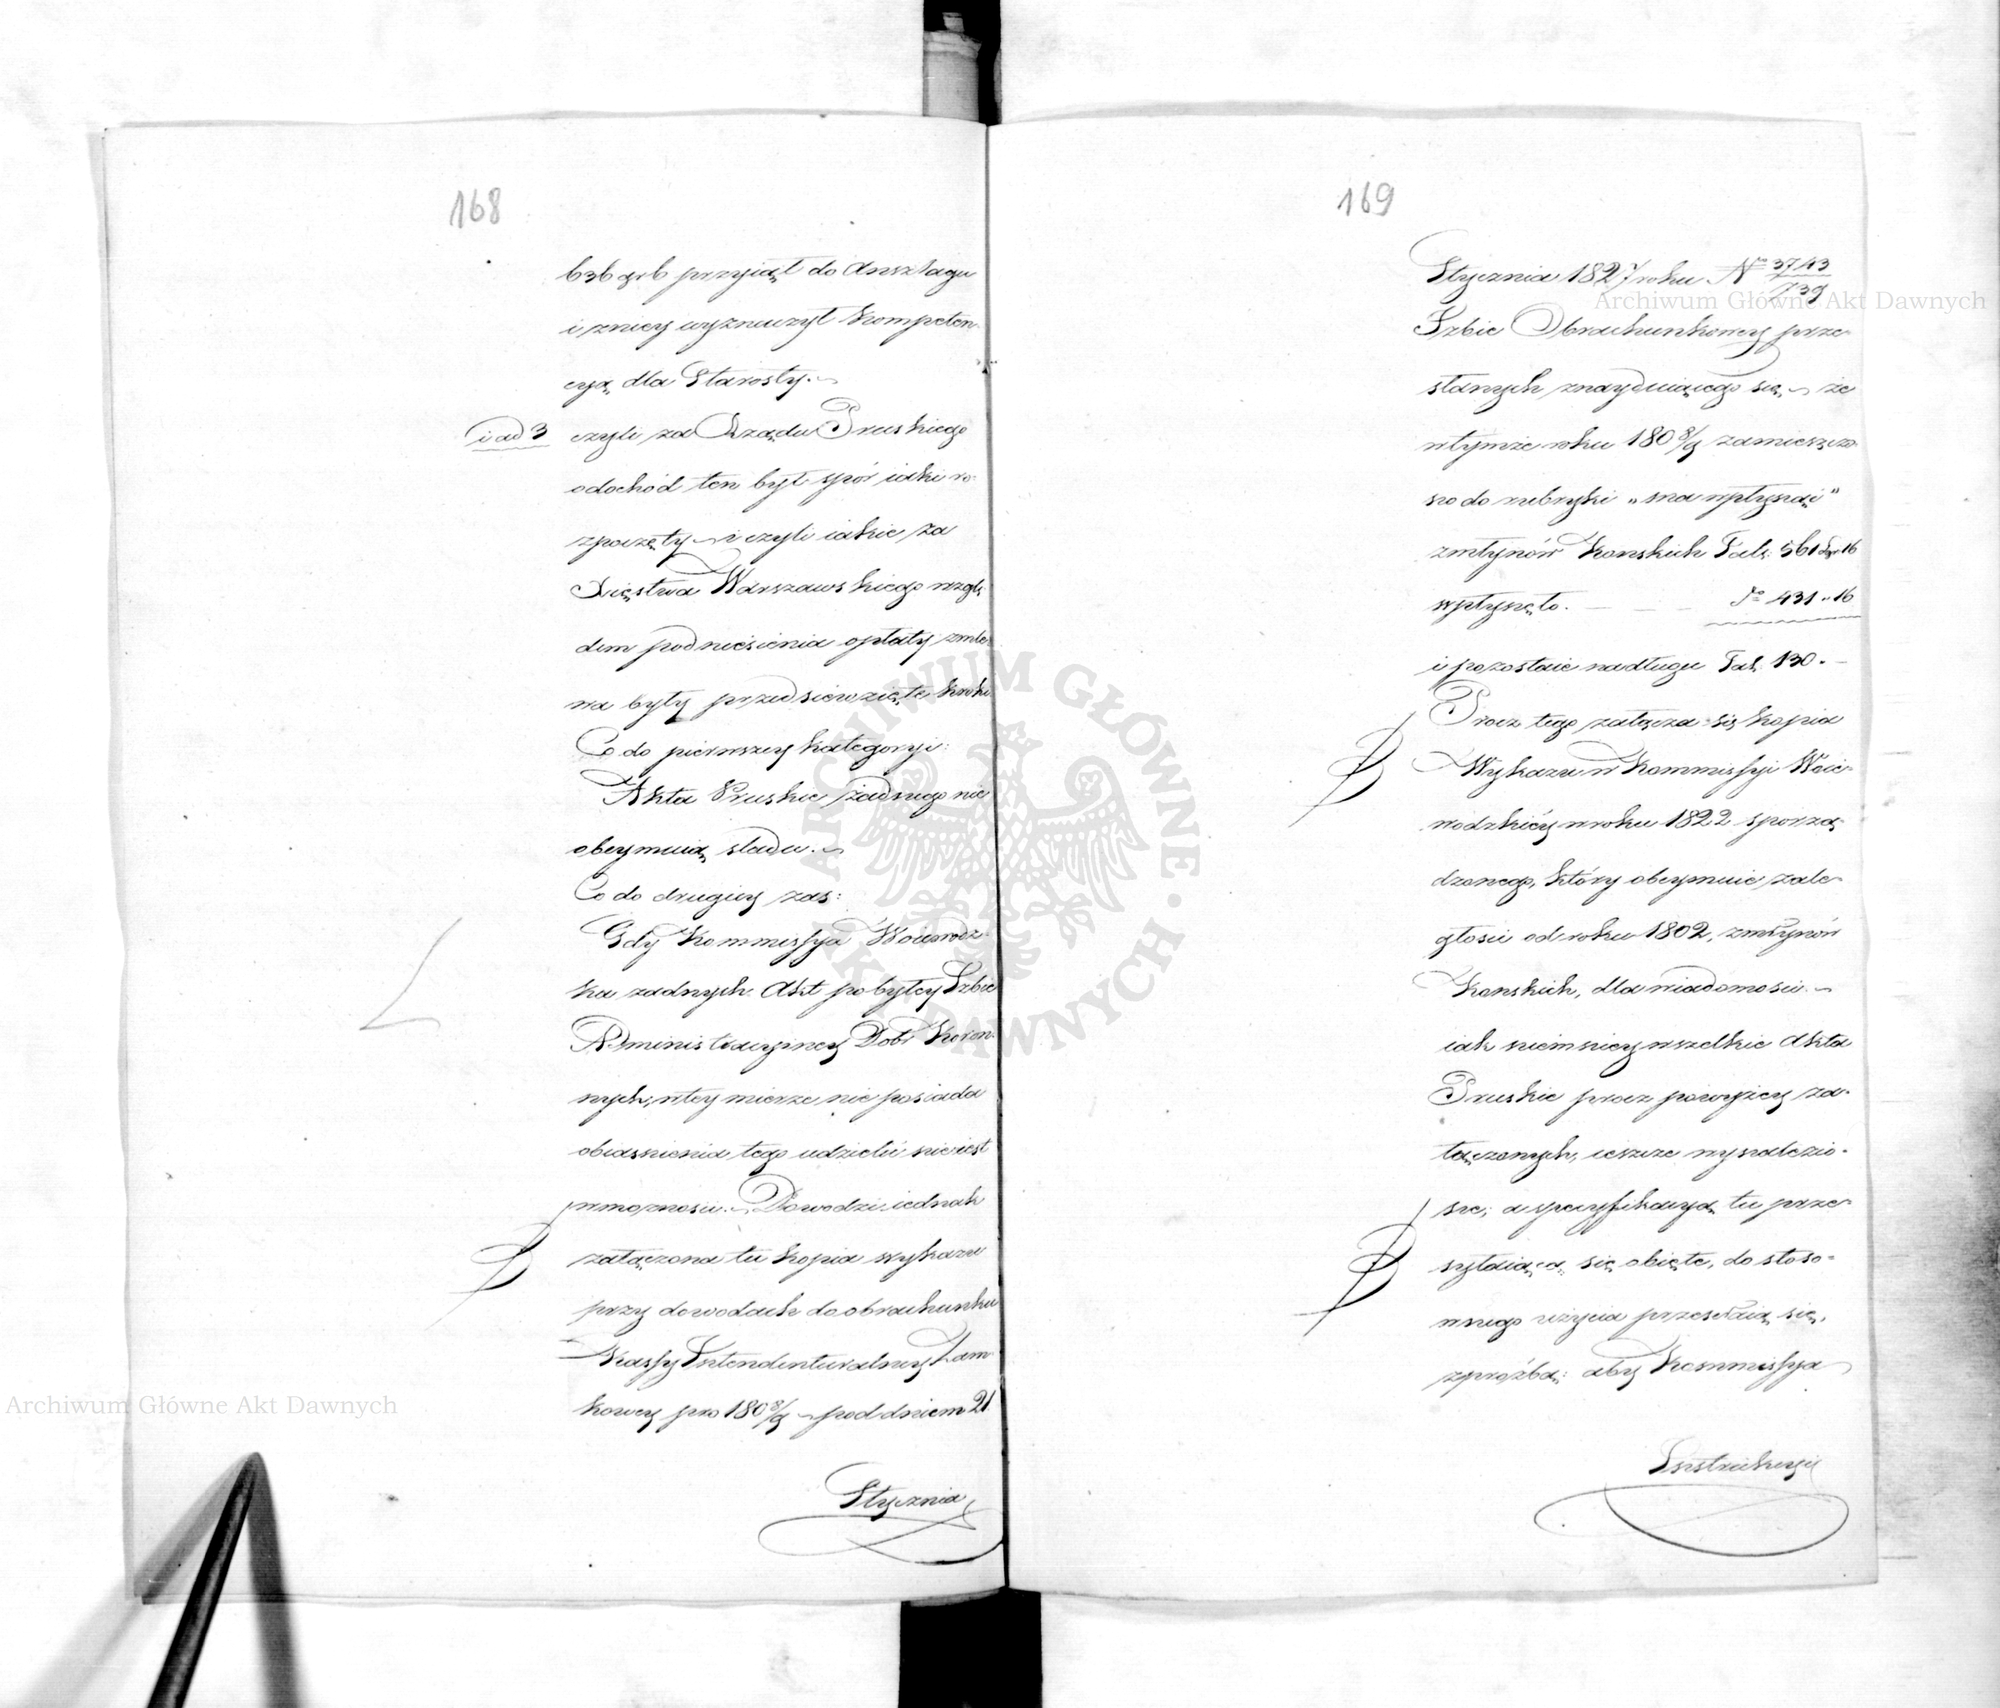 168
636 gr 6 przyiął do Ansztagu
i zniey wyznaczył Kompeten-
cyą dla Starosty.
i ad 3 czyli za Rządu Pruskiego
o dochód ten był spór iaki ro-
zpoczęty i czyli iakie za
Xięstwa Warszawskiego wzglę-
dem podniesienia opłaty zmle-
wa były przedsiewzięte kroki
Co do pierwszey kategoryi:
Akta Pruskie żadnego nie
obeymuią śladu.
Co do drugiey zaś:
Gdy Kommissya Woiewodz-
ka żadnych Akt po byłey Izbie
Administracyiney Dóbr Koron-
nych, w tey mierze nie posiada
obiaśnienia tego udzielić nie iest
w możności. Dowodzi iednak
załączona tu kopia wykazu
przy dowodach do obrachunku
Kassy Intendenturalney Zam-
kowey pro 180 8/9 pod dniem 21
Stycznia
169
Stycznia 1827 roku No 3743/739
Izbie Obrachunkowey prze-
słanych znayduiącego się, że
w tymże roku 180 8/9 zamieszczo-
no do rubryki „ma wpłynąć"
z młynów Konskich Tal: 561 dgr 16
wpłynęło. do 431 " 16
i pozostaie na długu Tal. 130.
Procz tego załącza się kopia
Wykazu w Kommissyi Woie-
wodzkiéy w roku 1822 sporzą-
dzonego, który obeymuie zale-
głości od roku 1802, z młynów
Konskich, dla wiadomości.
iak niemniey wszelkie Akta
Pruskie procz powyżey za-
łączonych, ieszcze wynalezio-
ne, a specyfikacyą tu prze-
syłaiącą się obięte, do stoso-
wnego użycia przesełaią się,
z prośbą: aby Kommissya
Instrukcyi
Archiwum Główne Akt Dawnych
Archiwum Główne Akt Dawnych
ARCHIWUM GŁÓWNE AKT DAWNYCH